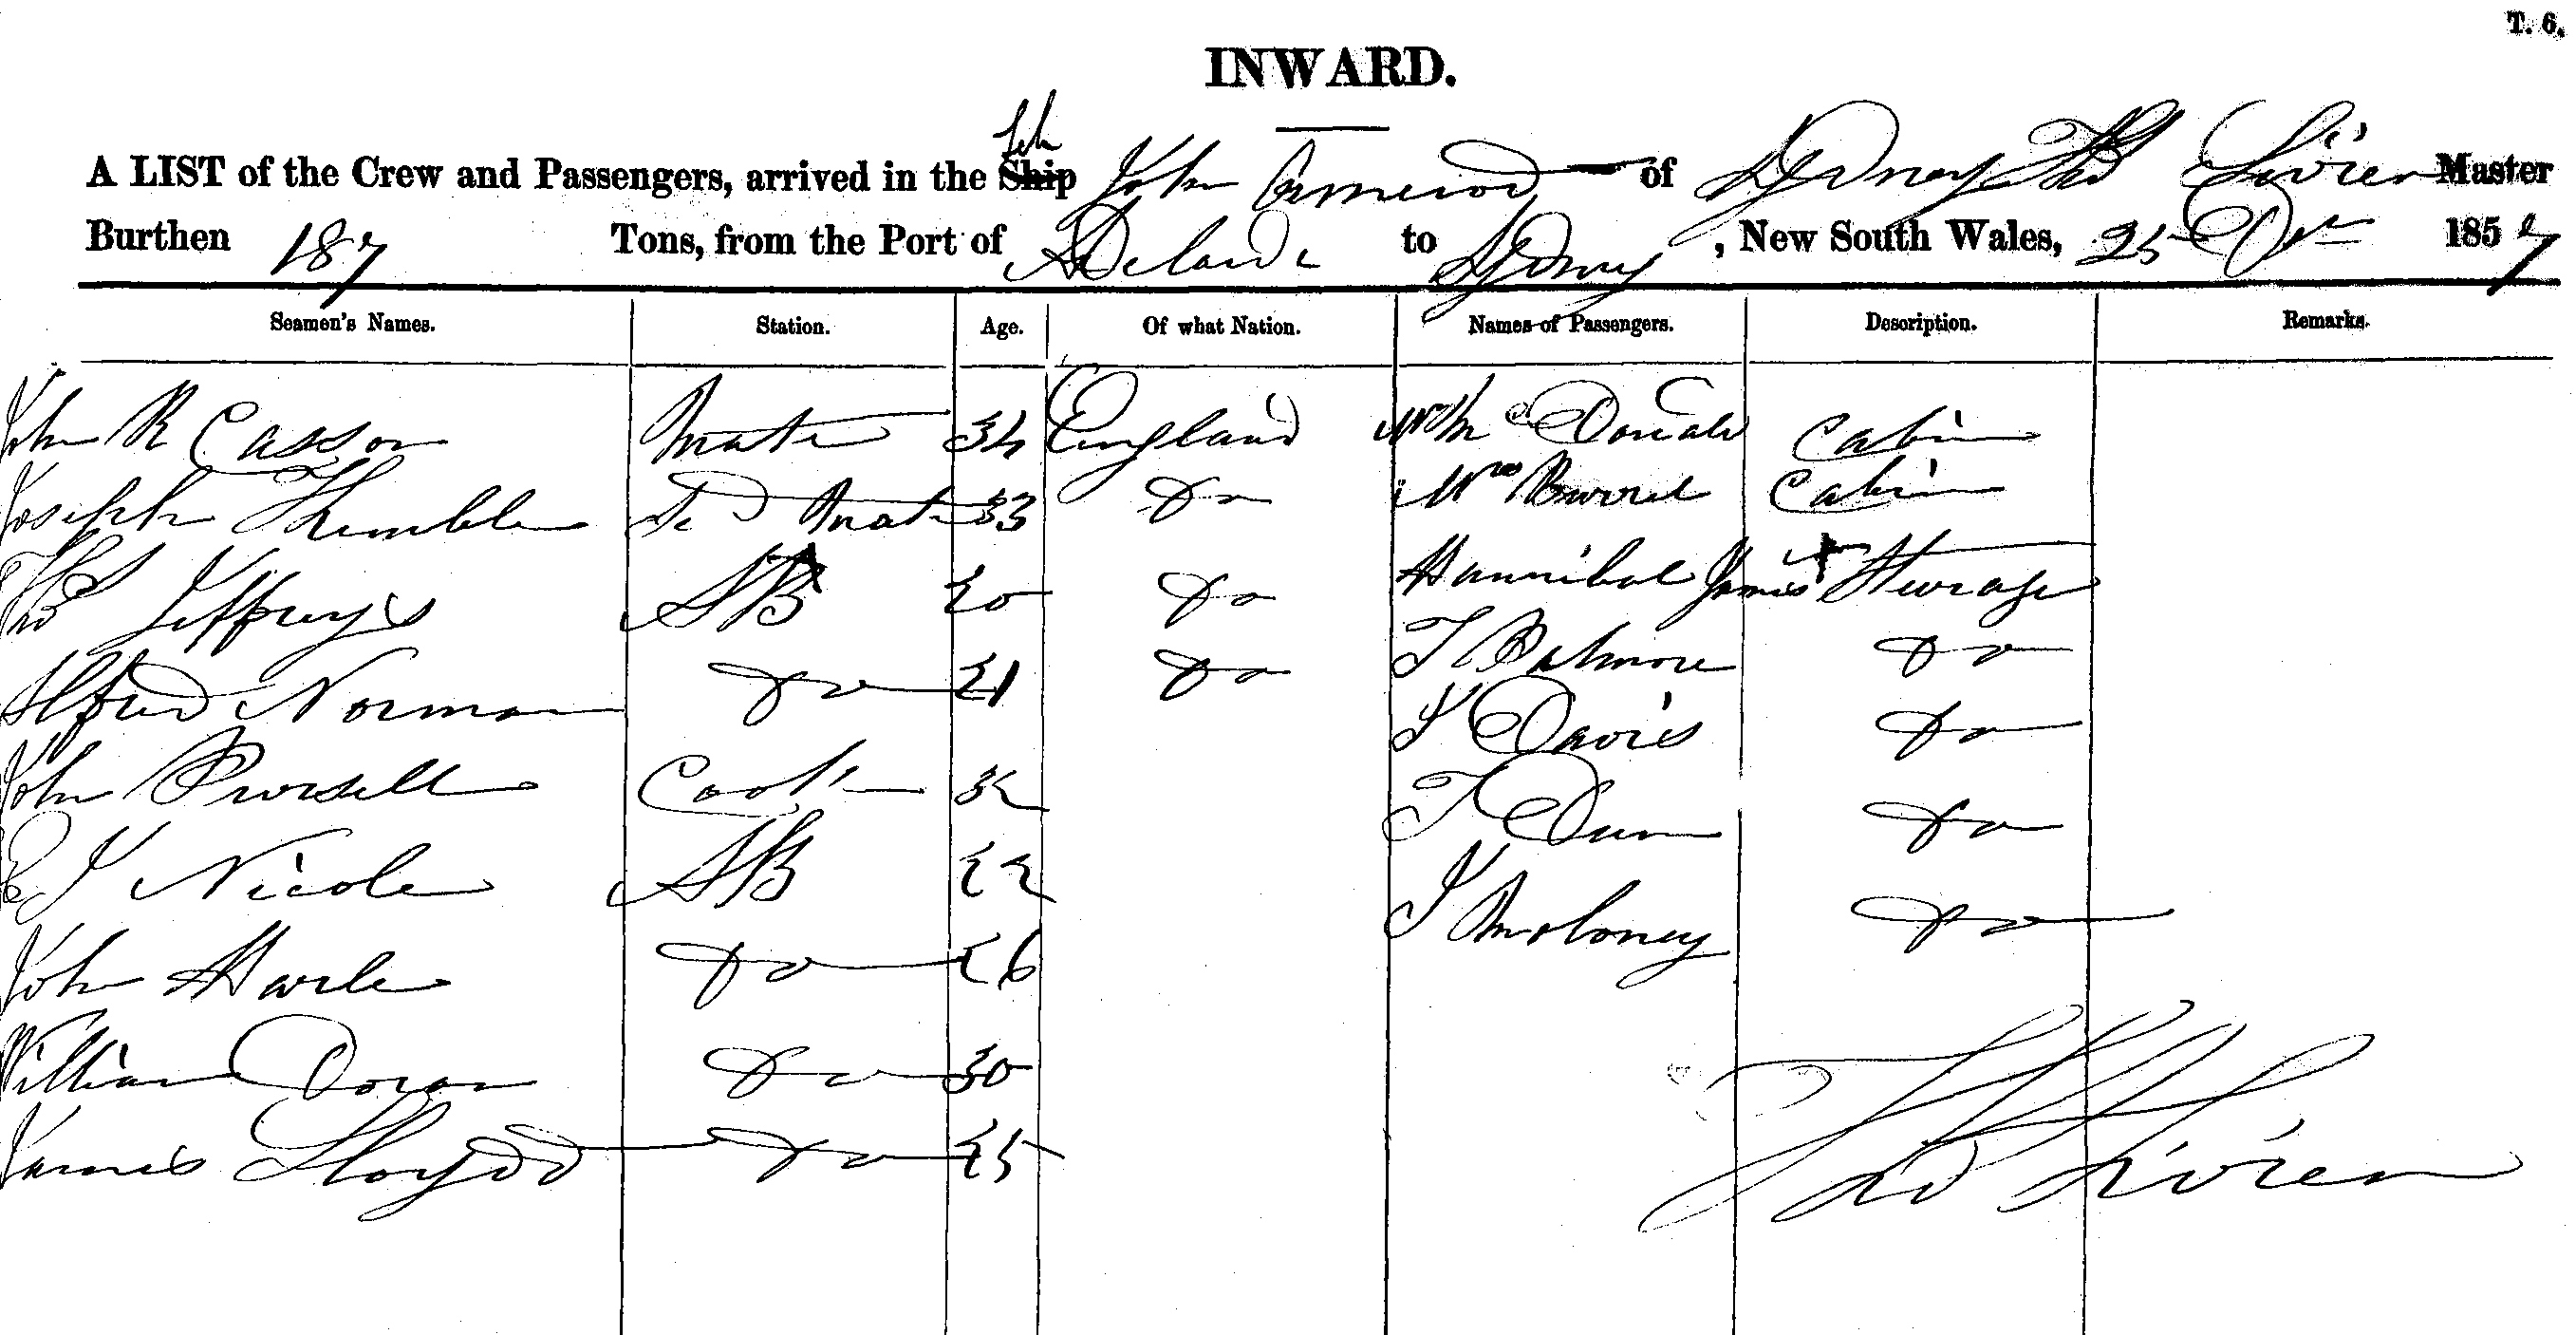 T. 6.
INWARD.
Sch
A LIST of the Crew and Passengers, arrived in the Ship John Ormerod of Sydney Thos Livien Master
Burthen 187 Tons, from the Port of Adelaide to Sydney, New South Wales, 25 Decr 1857
Seamen's Names. Station. Age. Of what Nation. Names of Passengers. Description. Remarks.
John R Casson Mate 34 England Mr Mc Donald Cabin
Joseph Kemble 2d Mate 33 Do Mrs Burrel Cabin
Thos Jeffreys AB 20 Do Hannibal James Steerage
Alfred Norman Do 21 Do T Patmore Do
John Pursell Cook 32 J Davis Do
E J Nicole AB 22 T Dunn Do
John Harle Do 26 J Moloney Do
William Doran Do 30
James Lloydd Do 25
Thos Livien